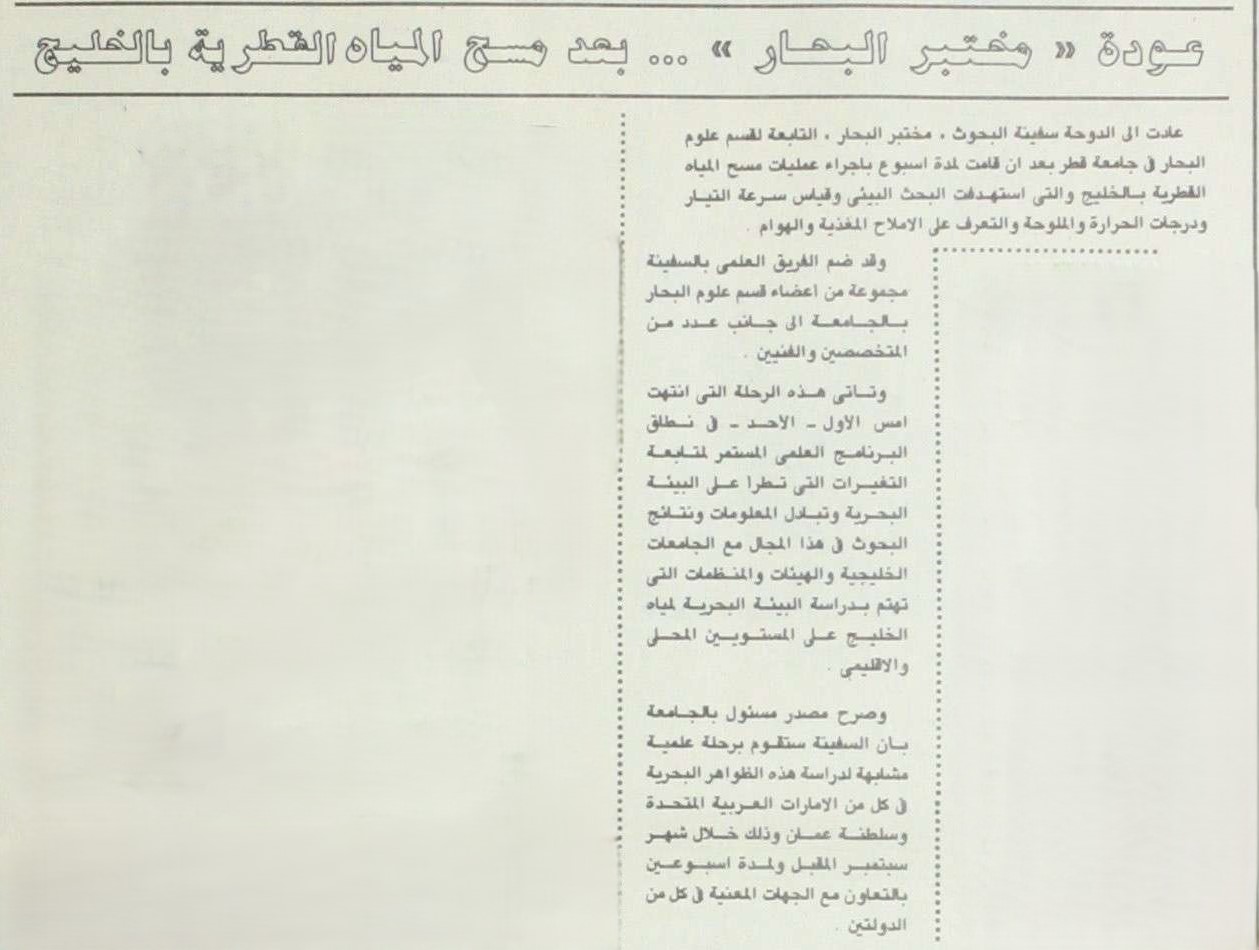 عودة « مختبر البحار » ... بعد مسح المياه القطرية بالخليج
عادت الى الدوحة سفينة البحوث ، مختبر البحار ، التابعة لقسم علوم
البحار فى جامعة قطر بعد ان قامت لمدة اسبوع باجراء عمليات مسح المياه
القطرية بالخليج والتى استهدفت البحث البيئى وقياس سرعة التيار
ودرجات الحرارة والملوحة والتعرف على الاملاح المغذية والهوام .
وقد ضم الفريق العلمى بالسفينة
مجموعة من أعضاء قسم علوم البحار
بالجامعة الى جانب عدد من
المتخصصين والفنيين .
وتاتى هذه الرحلة التى انتهت
امس الأول - الأحد - فى نطاق
البرنامج العلمى المستمر لمتابعة
التغيرات التى تطرا على البيئة
البحرية وتبادل المعلومات ونتائج
البحوث فى هذا المجال مع الجامعات
الخليجية والهيئات والمنظمات التى
تهتم بدراسة البيئة البحرية لمياه
الخليج على المستويين المحلى
والاقليمى .
وصرح مصدر مسئول بالجامعة
بان السفينة ستقوم برحلة علمية
مشابهة لدراسة هذه الظواهر البحرية
فى كل من الامارات العربية المتحدة
وسلطنة عمان وذلك خلال شهر
سبتمبر المقبل ولمدة اسبوعين
بالتعاون مع الجهات المعنية فى كل من
الدولتين .